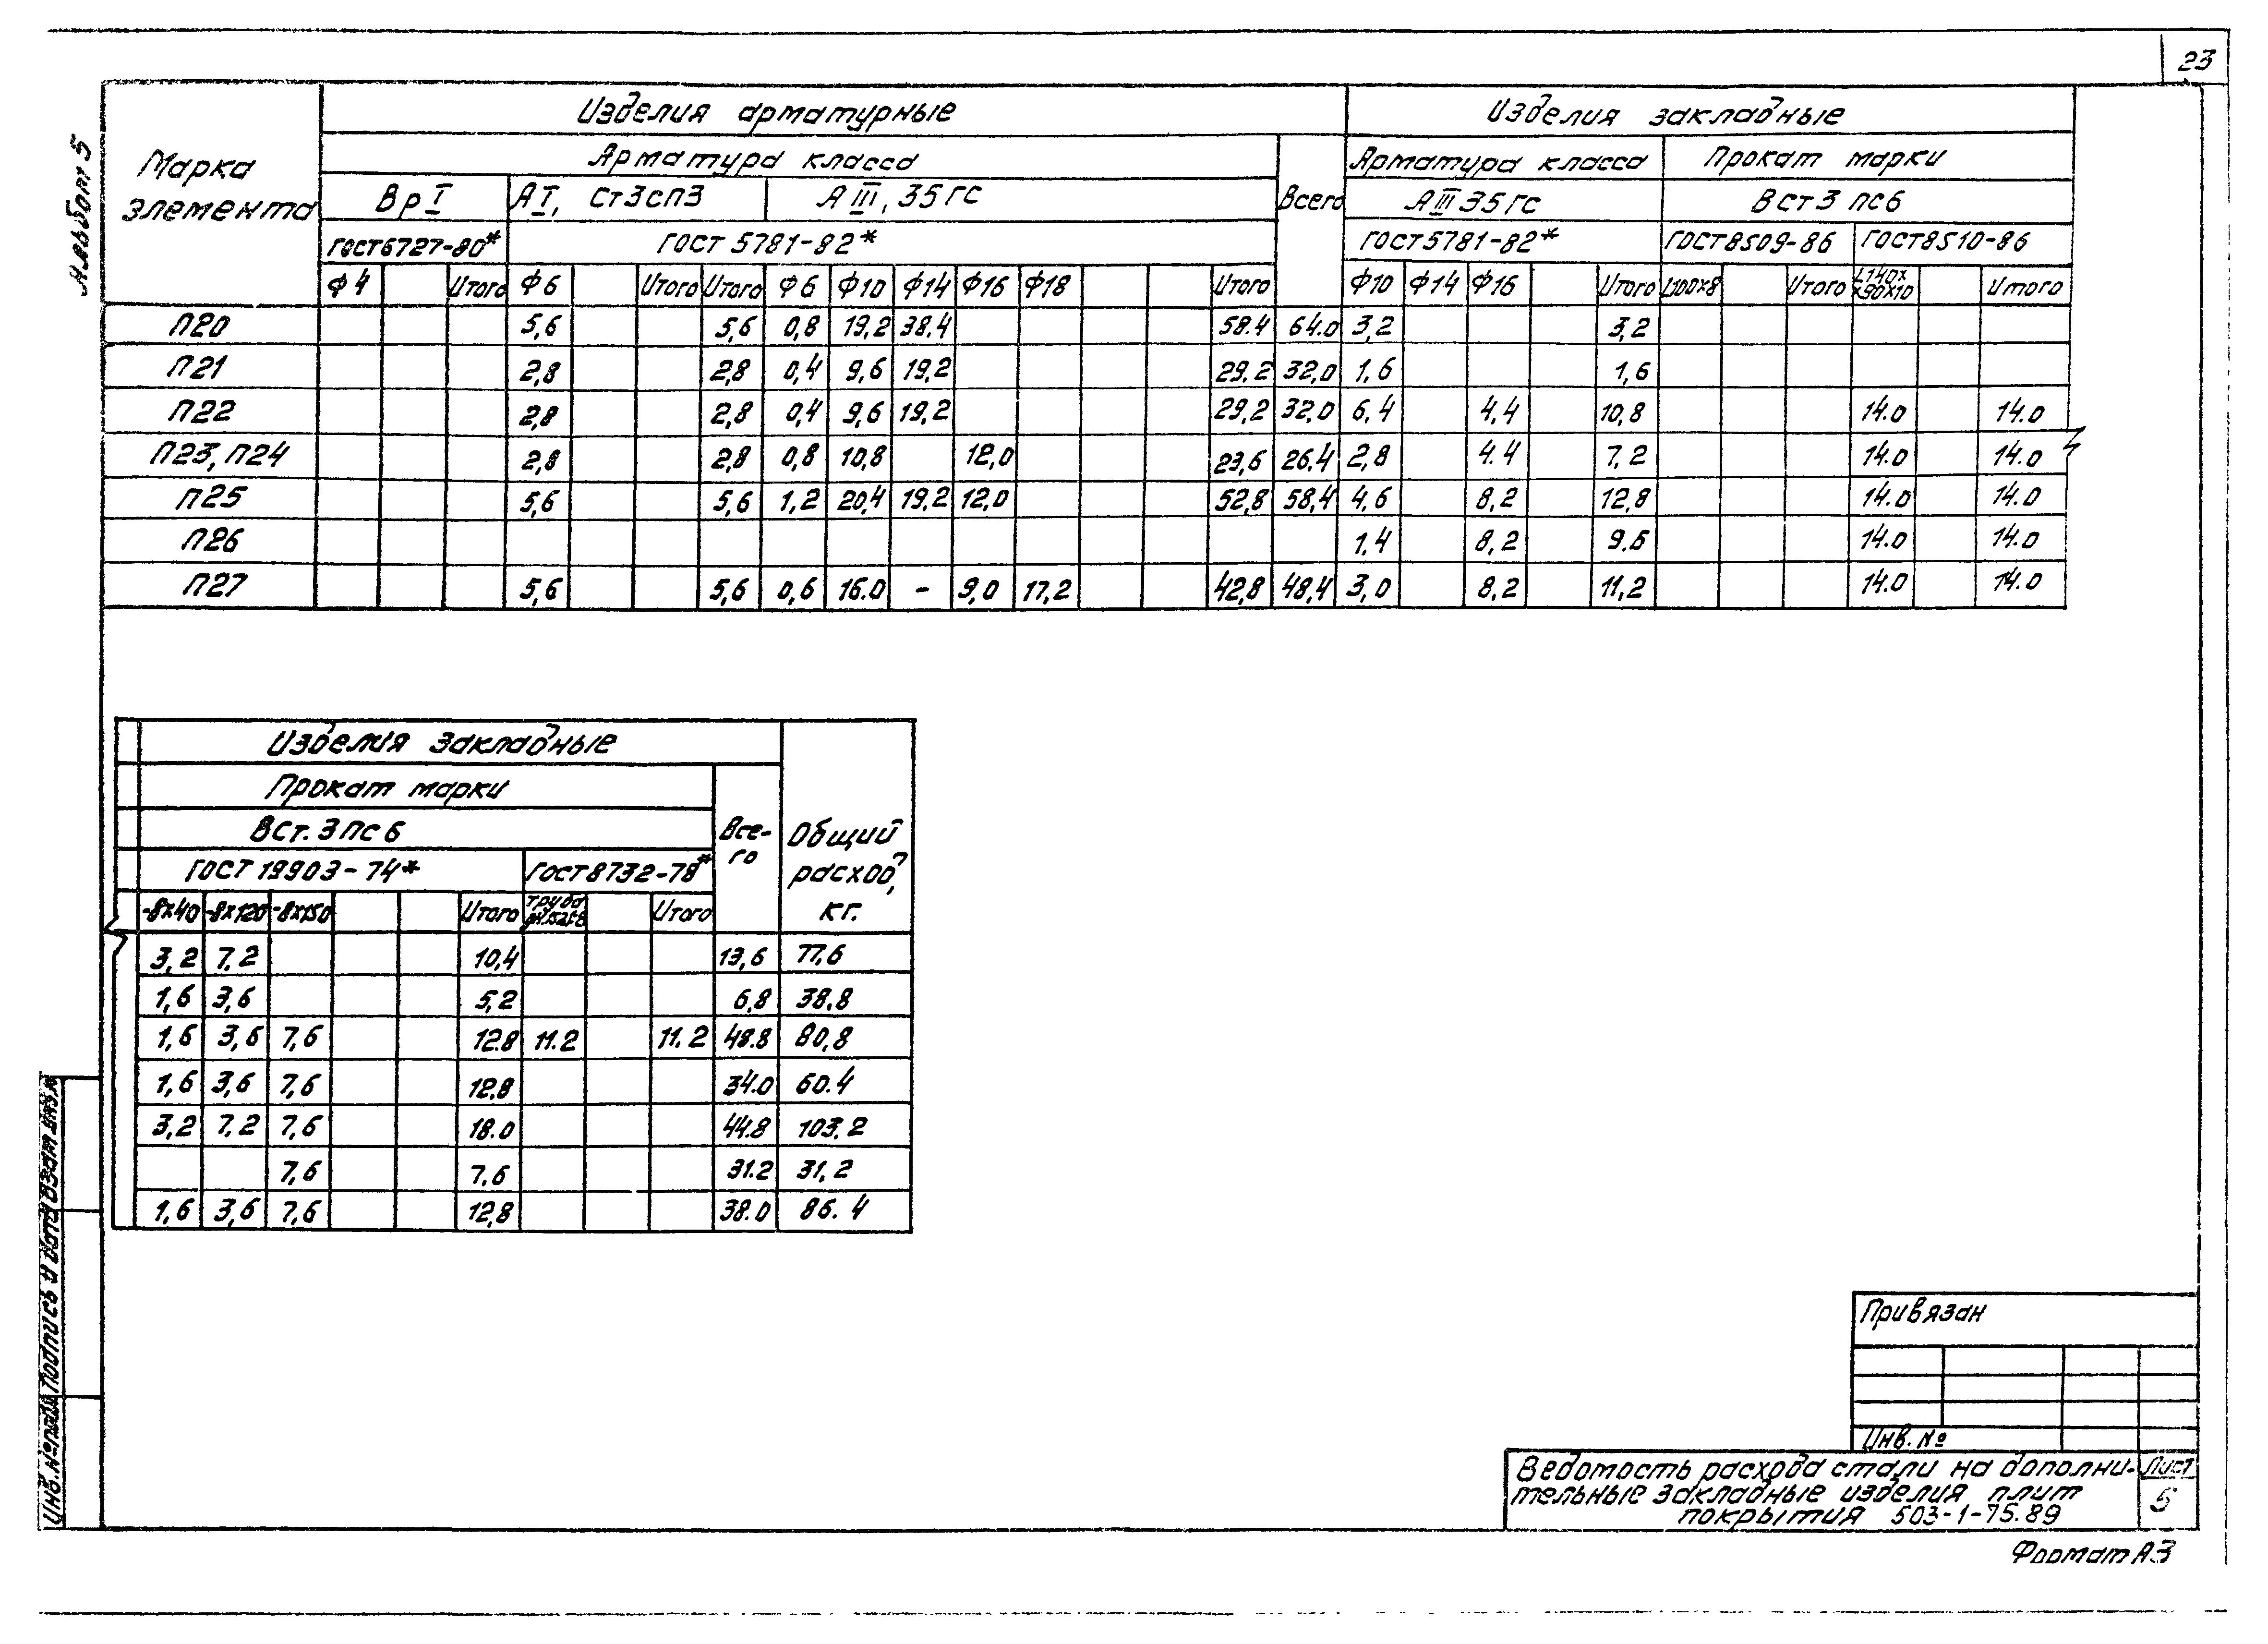 23
Альбом 5
Марка элемента
Изделия арматурные
Изделия закладные
Арматура класса
Всего
Арматура класса
Прокат марки
Вр I
А I, Ст3сп3
А III, 35ГС
А III 35ГС
Вст3 пс6
ГОСТ6727-80*
ГОСТ 5781-82*
ГОСТ5781-82*
ГОСТ8509-86
ГОСТ8510-86
Ф4 Итого Ф6 Итого Итого Ф6 Ф10 Ф14 Ф16 Ф18 Итого Ф10 Ф14 Ф16 Итого L100x8 Итого L140x x90x10 Итого
П20 5,6 5,6 0,8 19,2 38.4 58.4 64.0 3,2 3,2
П21 2,8 2,8 0,4 9,6 19,2 29,2 32,0 1,6 1,6
П22 2,8 2,8 0,4 9,6 19,2 29,2 32,0 6,4 4,4 10,8 14.0 14.0
П23, П24 2,8 2,8 0,8 10,8 12,0 23,6 26,4 2,8 4.4 7,2 14.0 14.0
П25 5,6 5,6 1,2 20,4 19,2 12,0 52,8 58,4 4,6 8,2 12,8 14.0 14.0
П26 1,4 8,2 9.6 14.0 14.0
П27 5,6 5,6 0,6 16.0 - 9,0 17,2 42,8 48,4 3,0 8,2 11,2 14.0 14.0
Изделия закладные
Прокат марки
Вст. 3 пс 6
Все-
го
Общий
расход,
кг.
ГОСТ 19903-74*
ГОСТ8732-78*
-8x40 -8x120 -8x150 Итого труба Итого
3,2 7,2 10,4 13,6 77,6
1,6 3,6 5,2 6,8 38,8
1,6 3,6 7,6 12.8 11.2 11.2 48.8 80,8
1,6 3,6 7,6 12,8 34.0 60.4
3,2 7,2 7,6 18.0 44.8 103,2
7,6 7,6 31.2 31,2
1,6 3,6 7,6 12,8 38.0 86.4
Инв.№подл. Подпись и дата Взам инв.№
Привязан
Инв. №
Ведомость расхода стали на дополни-
тельные закладные изделия плит
покрытия 503-1-75.89
Лист
5
Формат А3